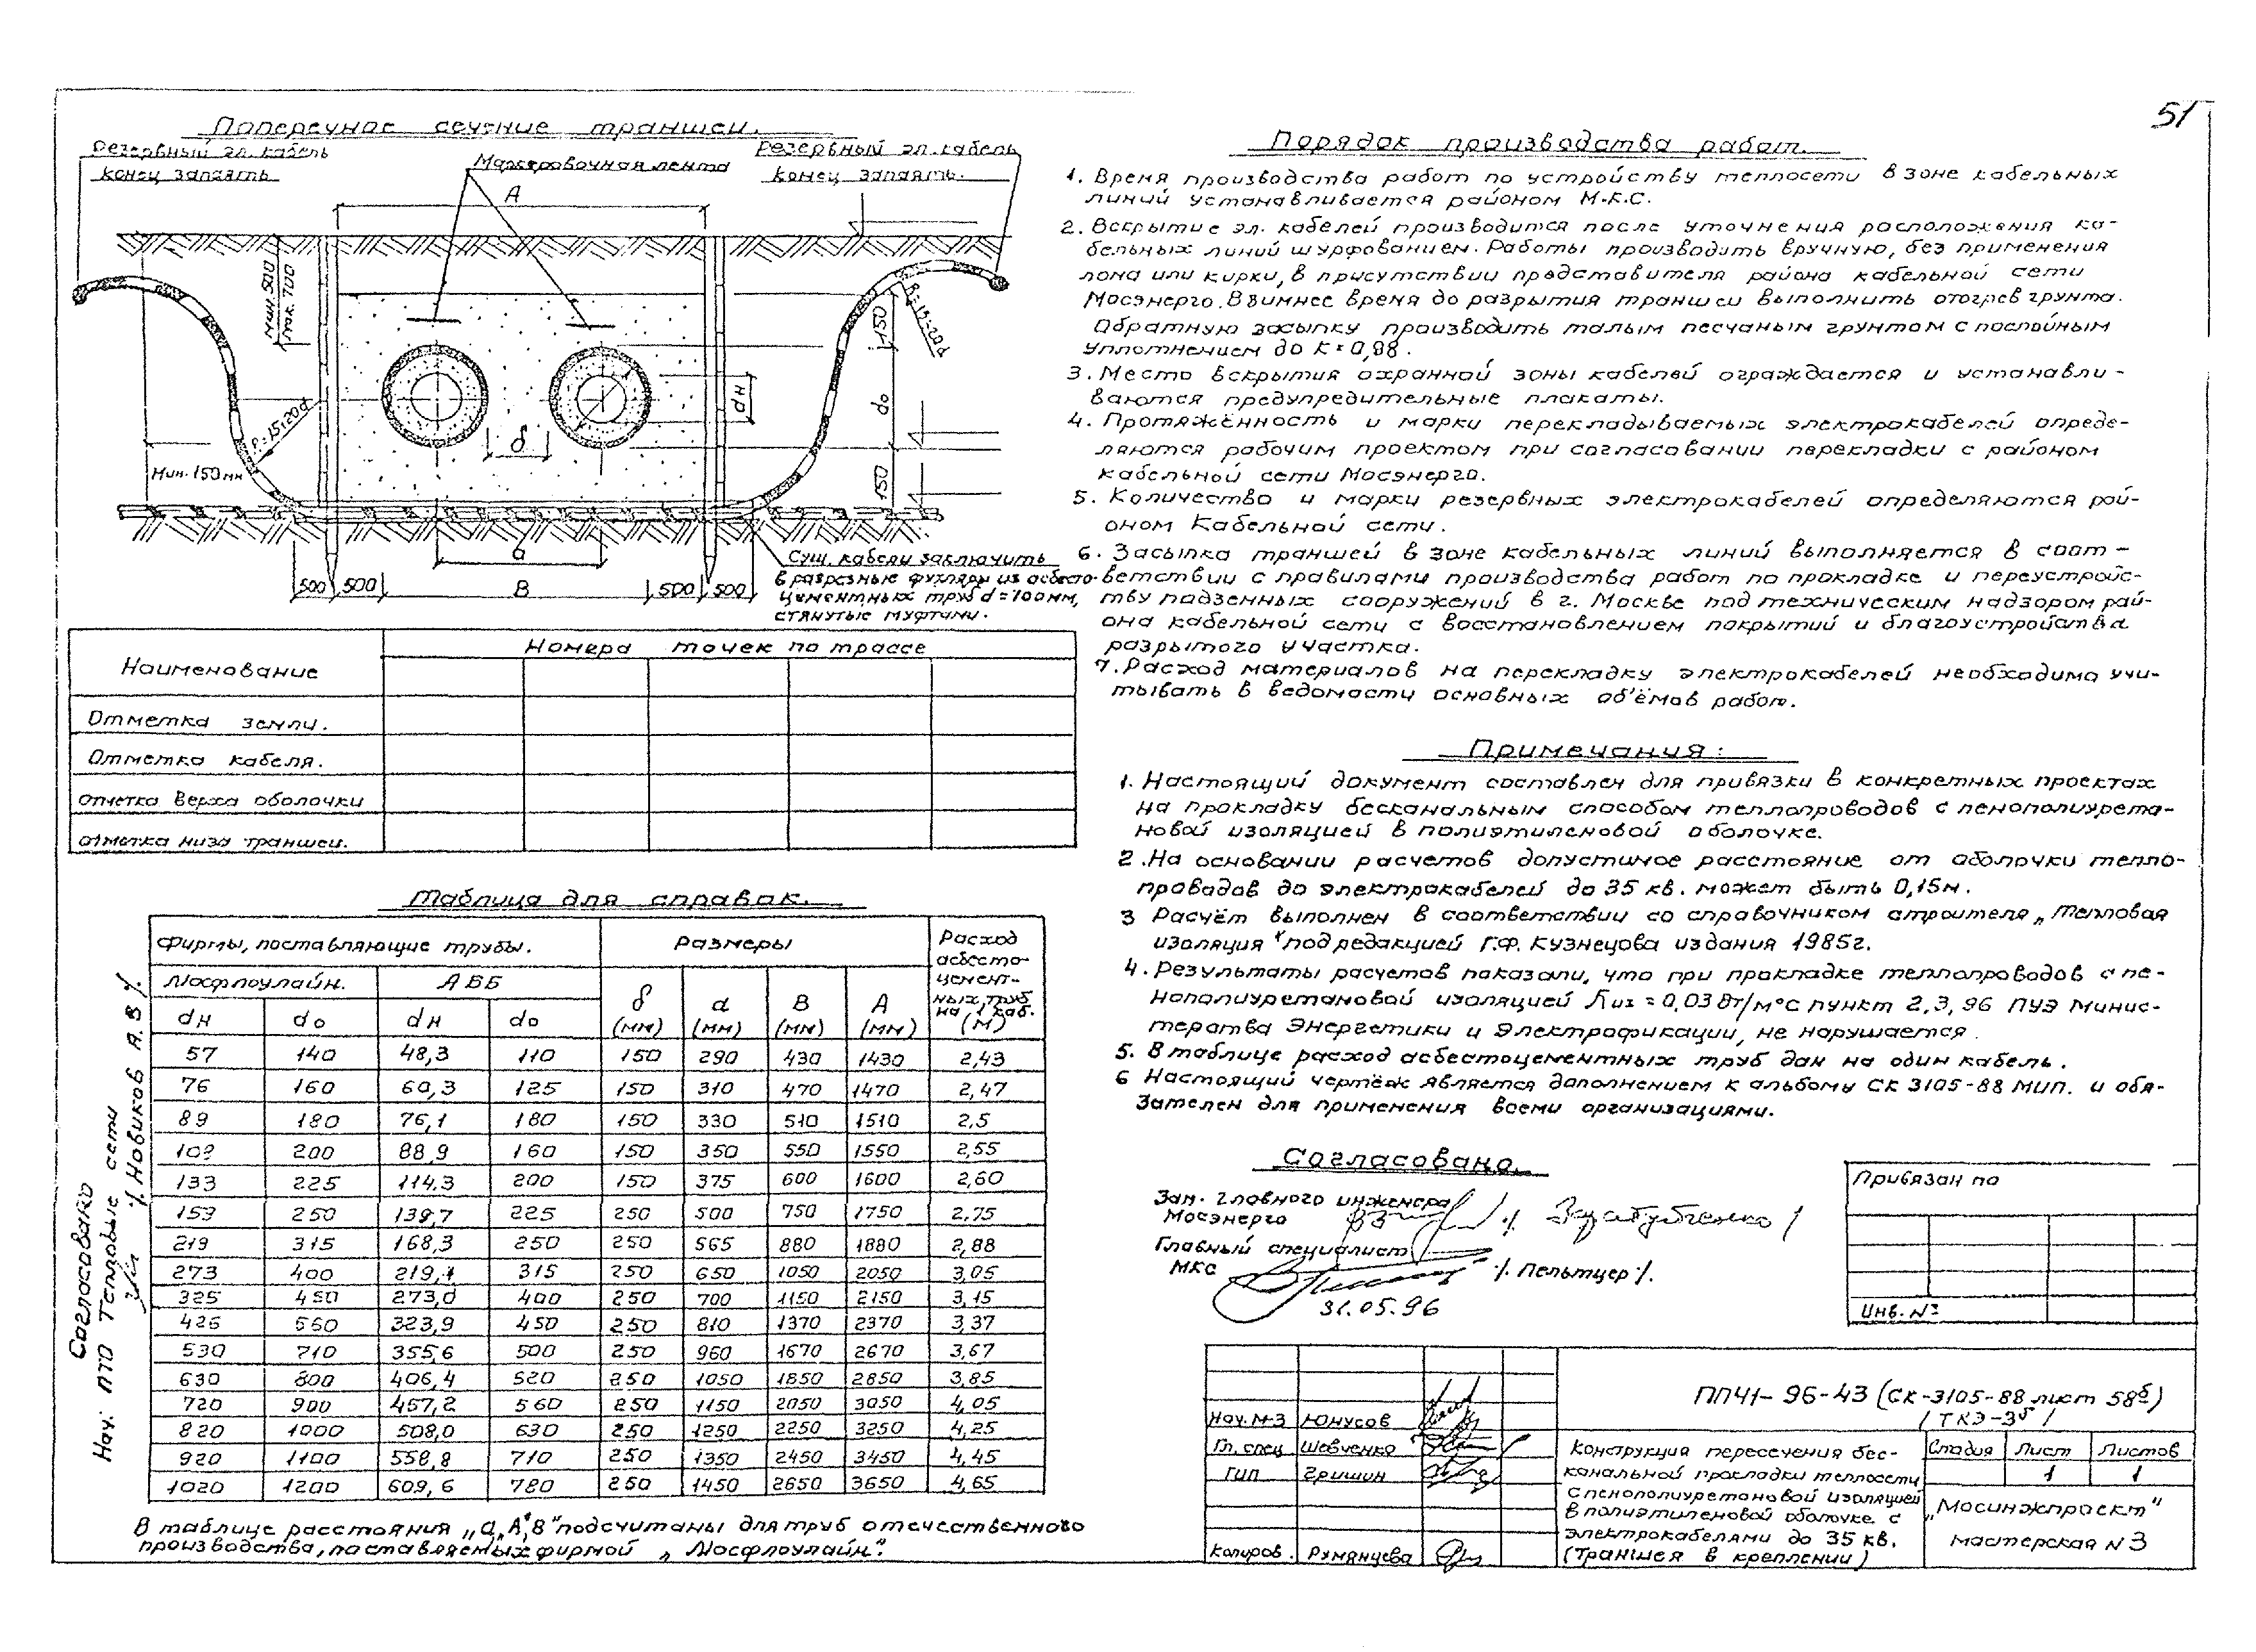 51
Поперечное сечение траншеи.
Резервный эл. кабель
конец запаять
Маркировочная лента
Резервный эл. кабель
конец запаять.
А
мин. 500
мак. 700
150
R=15÷20d
dн
do
R=15÷20d
δ
Мин. 150мм
150
а
500 500
В
500 500
Сущ. кабели заключить
в разрезные футляры из асбесто-
цементных труб d=100мм,
стянутые муфтами.
Наименование
Номера точек по трассе
Отметка земли.
Отметка кабеля.
отметка верха оболочки
отметка низа траншеи.
Таблица для справок.
Фирмы, поставляющие трубы. Размеры Расход асбесто-цемент-ных труб на 1 каб. (м)
Мосфлоулайн. АББ δ (мм) а (мм) В (мм) А (мм)
dн do dн do
57 140 48,3 110 150 290 430 1430 2,43
76 160 60,3 125 150 310 470 1470 2,47
89 180 76,1 180 150 330 510 1510 2,5
108 200 88,9 160 150 350 550 1550 2,55
133 225 114,3 200 150 375 600 1600 2,60
159 250 139,7 225 250 500 750 1750 2,75
219 315 168,3 250 250 565 880 1880 2,88
273 400 219,1 315 250 650 1050 2050 3,05
325 450 273,0 400 250 700 1150 2150 3,15
426 560 323,9 450 250 810 1370 2370 3,37
530 710 355,6 500 250 960 1670 2670 3,67
630 800 406,4 520 250 1050 1850 2850 3,85
720 900 457,2 560 250 1150 2050 3050 4,05
820 1000 508,0 630 250 1250 2250 3250 4,25
920 1100 558,8 710 250 1350 2450 3450 4,45
1020 1200 609,6 780 250 1450 2650 3650 4,65
В таблице расстояния „а„А„В" подсчитаны для труб отечественного
производства, поставляемых фирмой „Мосфлоулайн".
Согласовано
Нач. ПТО Тепловые сети
/. Новиков А.В /.
Порядок производства работ.
1. Время производства работ по устройству теплосети в зоне кабельных
линий устанавливается районом М.К.С.
2. Вскрытие эл. кабелей производится после уточнения расположения ка-
бельных линий шурфованием. Работы производить вручную, без применения
лома или кирки, в присутствии представителя района кабельной сети
Мосэнерго. В зимнее время до разрытия траншеи выполнить отогрев грунта.
Обратную засыпку производить талым песчаным грунтом с послойным
уплотнением до К=0,98.
3. Место вскрытия охранной зоны кабелей ограждается и устанавли-
ваются предупредительные плакаты.
4. Протяжённость и марки перекладываемых электрокабелей опреде-
ляются рабочим проектом при согласовании перекладки с районом
кабельной сети Мосэнерго.
5. Количество и марки резервных электрокабелей определяются рай-
оном Кабельной сети.
6. Засыпка траншей в зоне кабельных линий выполняется в соот-
ветствии с правилами производства работ по прокладке и переустройс-
тву подземных сооружений в г. Москве под техническим надзором рай-
она кабельной сети с восстановлением покрытий и благоустройства
разрытого участка.
7. Расход материалов на перекладку электрокабелей необходимо учи-
тывать в ведомости основных объёмов работ.
Примечания:
1. Настоящий документ составлен для привязки в конкретных проектах
на прокладку бесканальным способом теплопроводов с пенополиурета-
новой изоляцией в полиэтиленовой оболочке.
2. На основании расчетов допустимое расстояние от оболочки тепло-
проводов до электрокабелей до 35 кв. может быть 0,15м.
3 Расчёт выполнен в соответствии со справочником строителя „Тепловая
изоляция" под редакцией Г.Ф. Кузнецова издания 1985г.
4. Результаты расчетов показали, что при прокладке теплопроводов с пе-
нополиуретановой изоляцией λиз=0,03 Вт/м°С пункт 2,3,96 ПУЭ Минис-
терства Энергетики и Электрофикации, не нарушается.
5. В таблице расход асбестоцементных труб дан на один кабель.
6 Настоящий чертёж является дополнением к альбому СК 3105-88 МИП. и обя-
зателен для применения всеми организациями.
Согласовано.
Зам. главного инженера
Мосэнерго
Главный специалист
МКС /. Пельтцер /.
31.05.96
Привязан по
Инв. №
Нач. М-3 Юнусов
Гл. спец Шевченко
ГИП Гришин
Копиров. Румянцева
ПП41-96-43 (СК-3105-88 лист 58б)
/ТКЭ-3б/
Конструкция пересечения бес-
канальной прокладки теплосети
с пенополиуретановой изоляцией
в полиэтиленовой оболочке с
электрокабелями до 35 кв.
(Траншея в креплении)
Стадия Лист Листов
1 1
„Мосинжпроект"
Мастерская N3